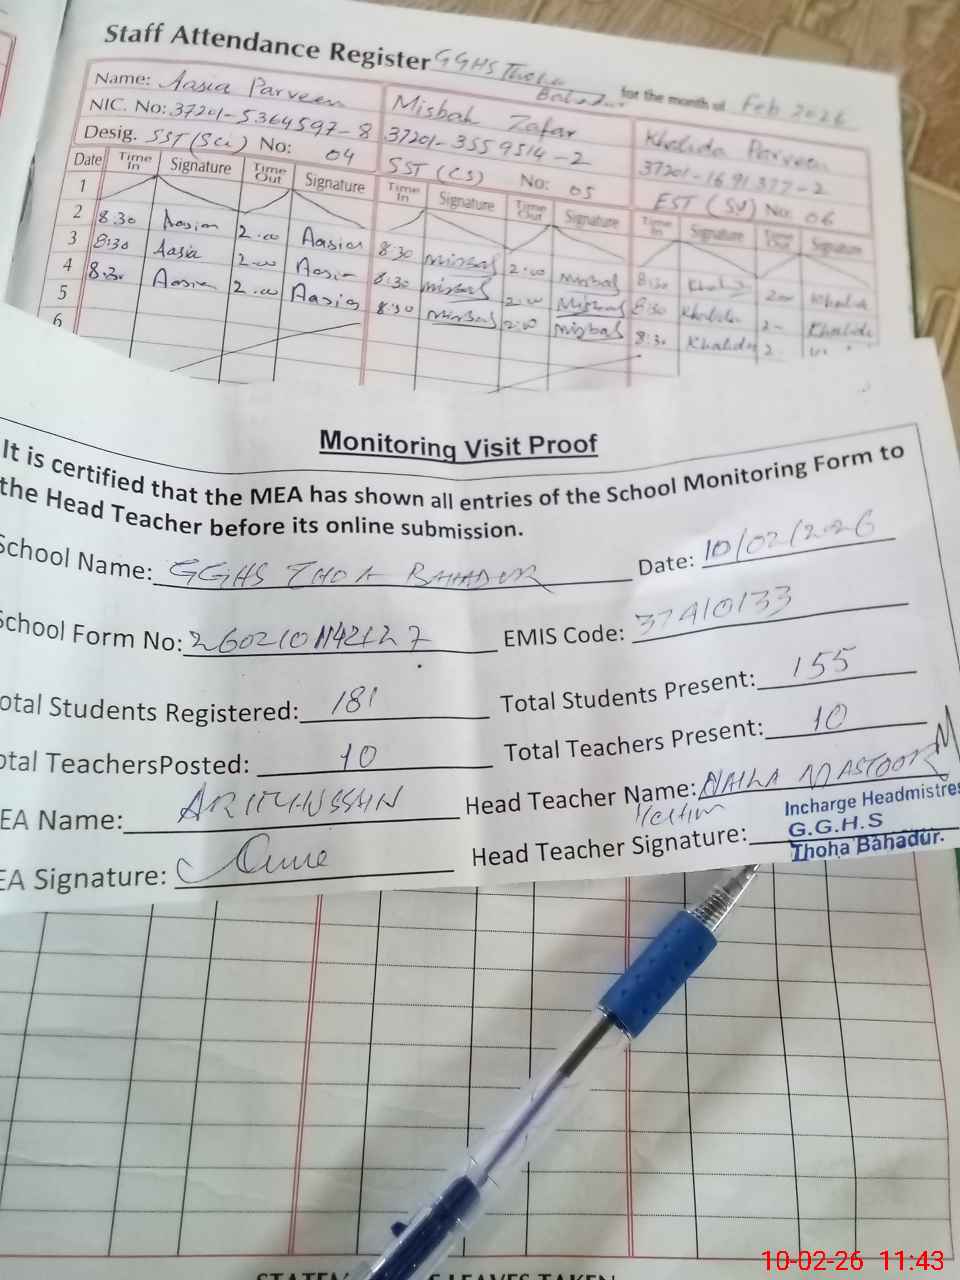 Staff Attendance Register GGHS Thoha Bahadur for the month of Feb 2026
Name: Aasia Parveen Misbah Zafar Khalida Parveen
NIC. No: 37201-5364597-8 37201-3559514-2 37201-1691377-2
Desig. SST (Sci) No: 04 SST (CS) No: 05 EST (SV) No: 06
Date Time In Signature Time Out Signature Time In Signature Time Out Signature Time In Signature Time Out Signature
1
2 8:30 Aasia 2.00 Aasia 8:30 Misbah 2:00 Misbah 8:30 Khalida 2:00 Khalida
3 8:30 Aasia 2.00 Aasia 8:30 Misbah 2:00 Misbah 8:30 Khalida 2- Khalida
4 8:30 Aasia 2.00 Aasia 8:30 Misbah 2:00 Misbah 8:30 Khalida 2.
5
6
Monitoring Visit Proof
It is certified that the MEA has shown all entries of the School Monitoring Form to
the Head Teacher before its online submission.
School Name: GGHS THOA BAHADUR Date: 10/02/2026
School Form No: EMIS Code: 37410133
otal Students Registered: 181 Total Students Present: 155
otal TeachersPosted: 10 Total Teachers Present: 10
EA Name: ARIF HUSSAIN Head Teacher Name: NAILA MASTOOR
EA Signature: Head Teacher Signature:
Incharge Headmistres
G.G.H.S
Thoha Bahadur.
10-02-26 11:43